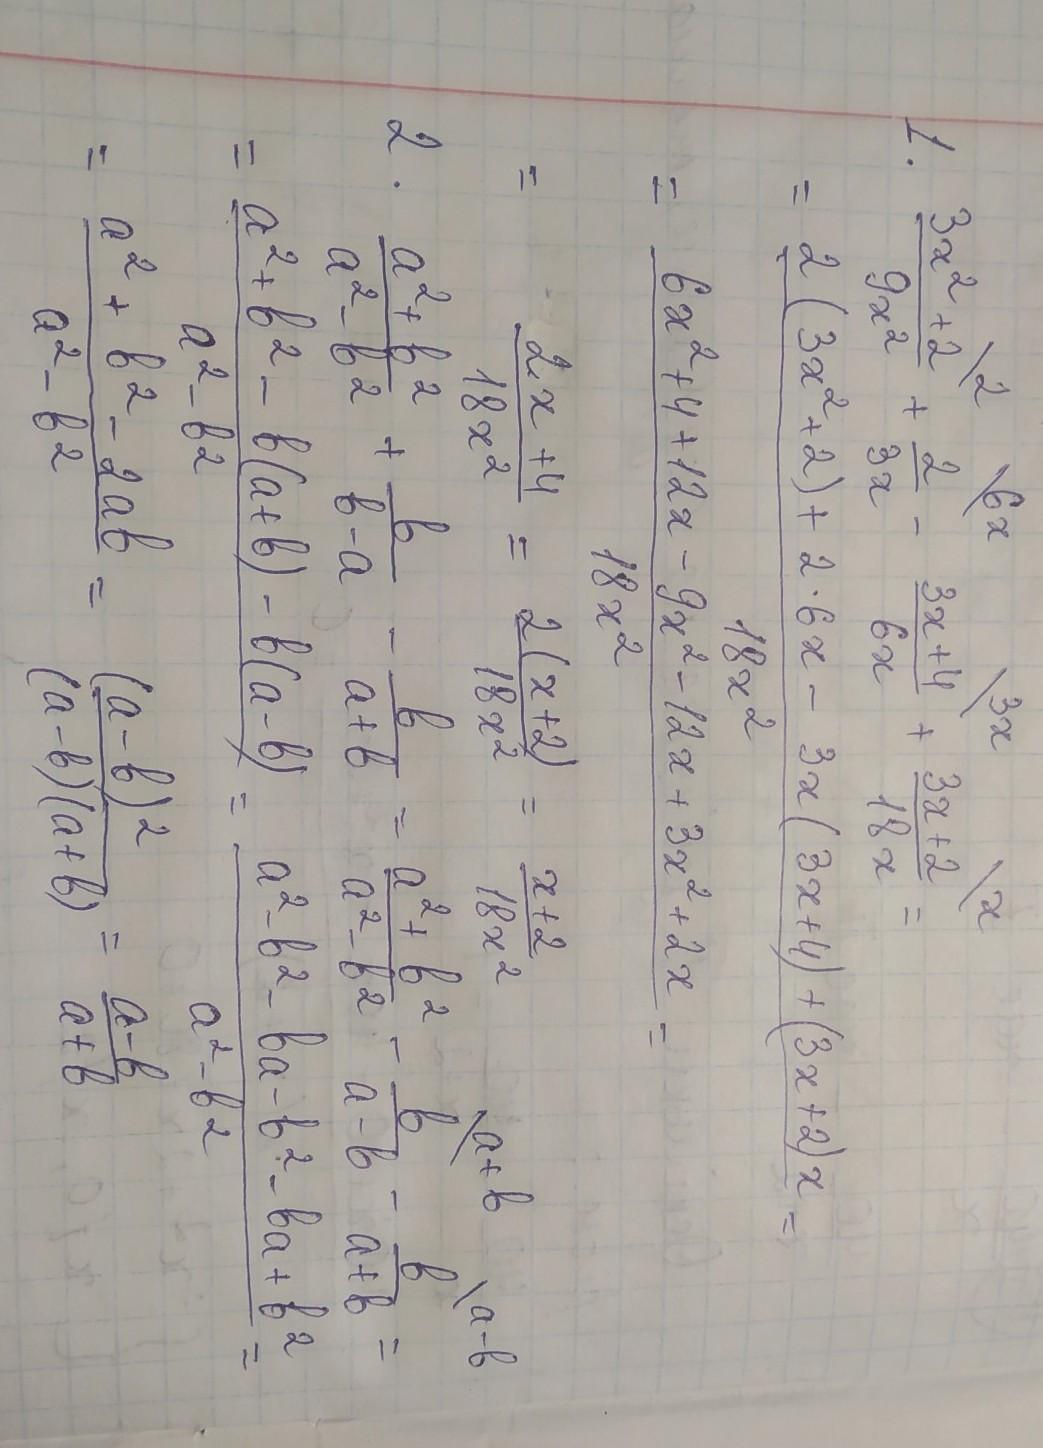 1. (3x²+2)/(9x²) \2 + 2/(3x) \6x - (3x+4)/(6x) \3x + (3x+2)/(18x) \x =
= (2(3x²+2)+2·6x-3x(3x+4)+(3x+2)x)/(18x²) =
= (6x²+4+12x-9x²-12x+3x²+2x)/(18x²) =
= (2x+4)/(18x²) = (2(x+2))/(18x²) = (x+2)/(18x²)
2. (a²+b²)/(a²-b²) + b/(b-a) - b/(a+b) = (a²+b²)/(a²-b²) - b/(a-b) \a+b - b/(a+b) \a-b =
= (a²+b²-b(a+b)-b(a-b))/(a²-b²) = (a²-b²-ba-b²-ba+b²)/(a²-b²) =
= (a²+b²-2ab)/(a²-b²) = (a-b)²/((a-b)(a+b)) = (a-b)/(a+b)